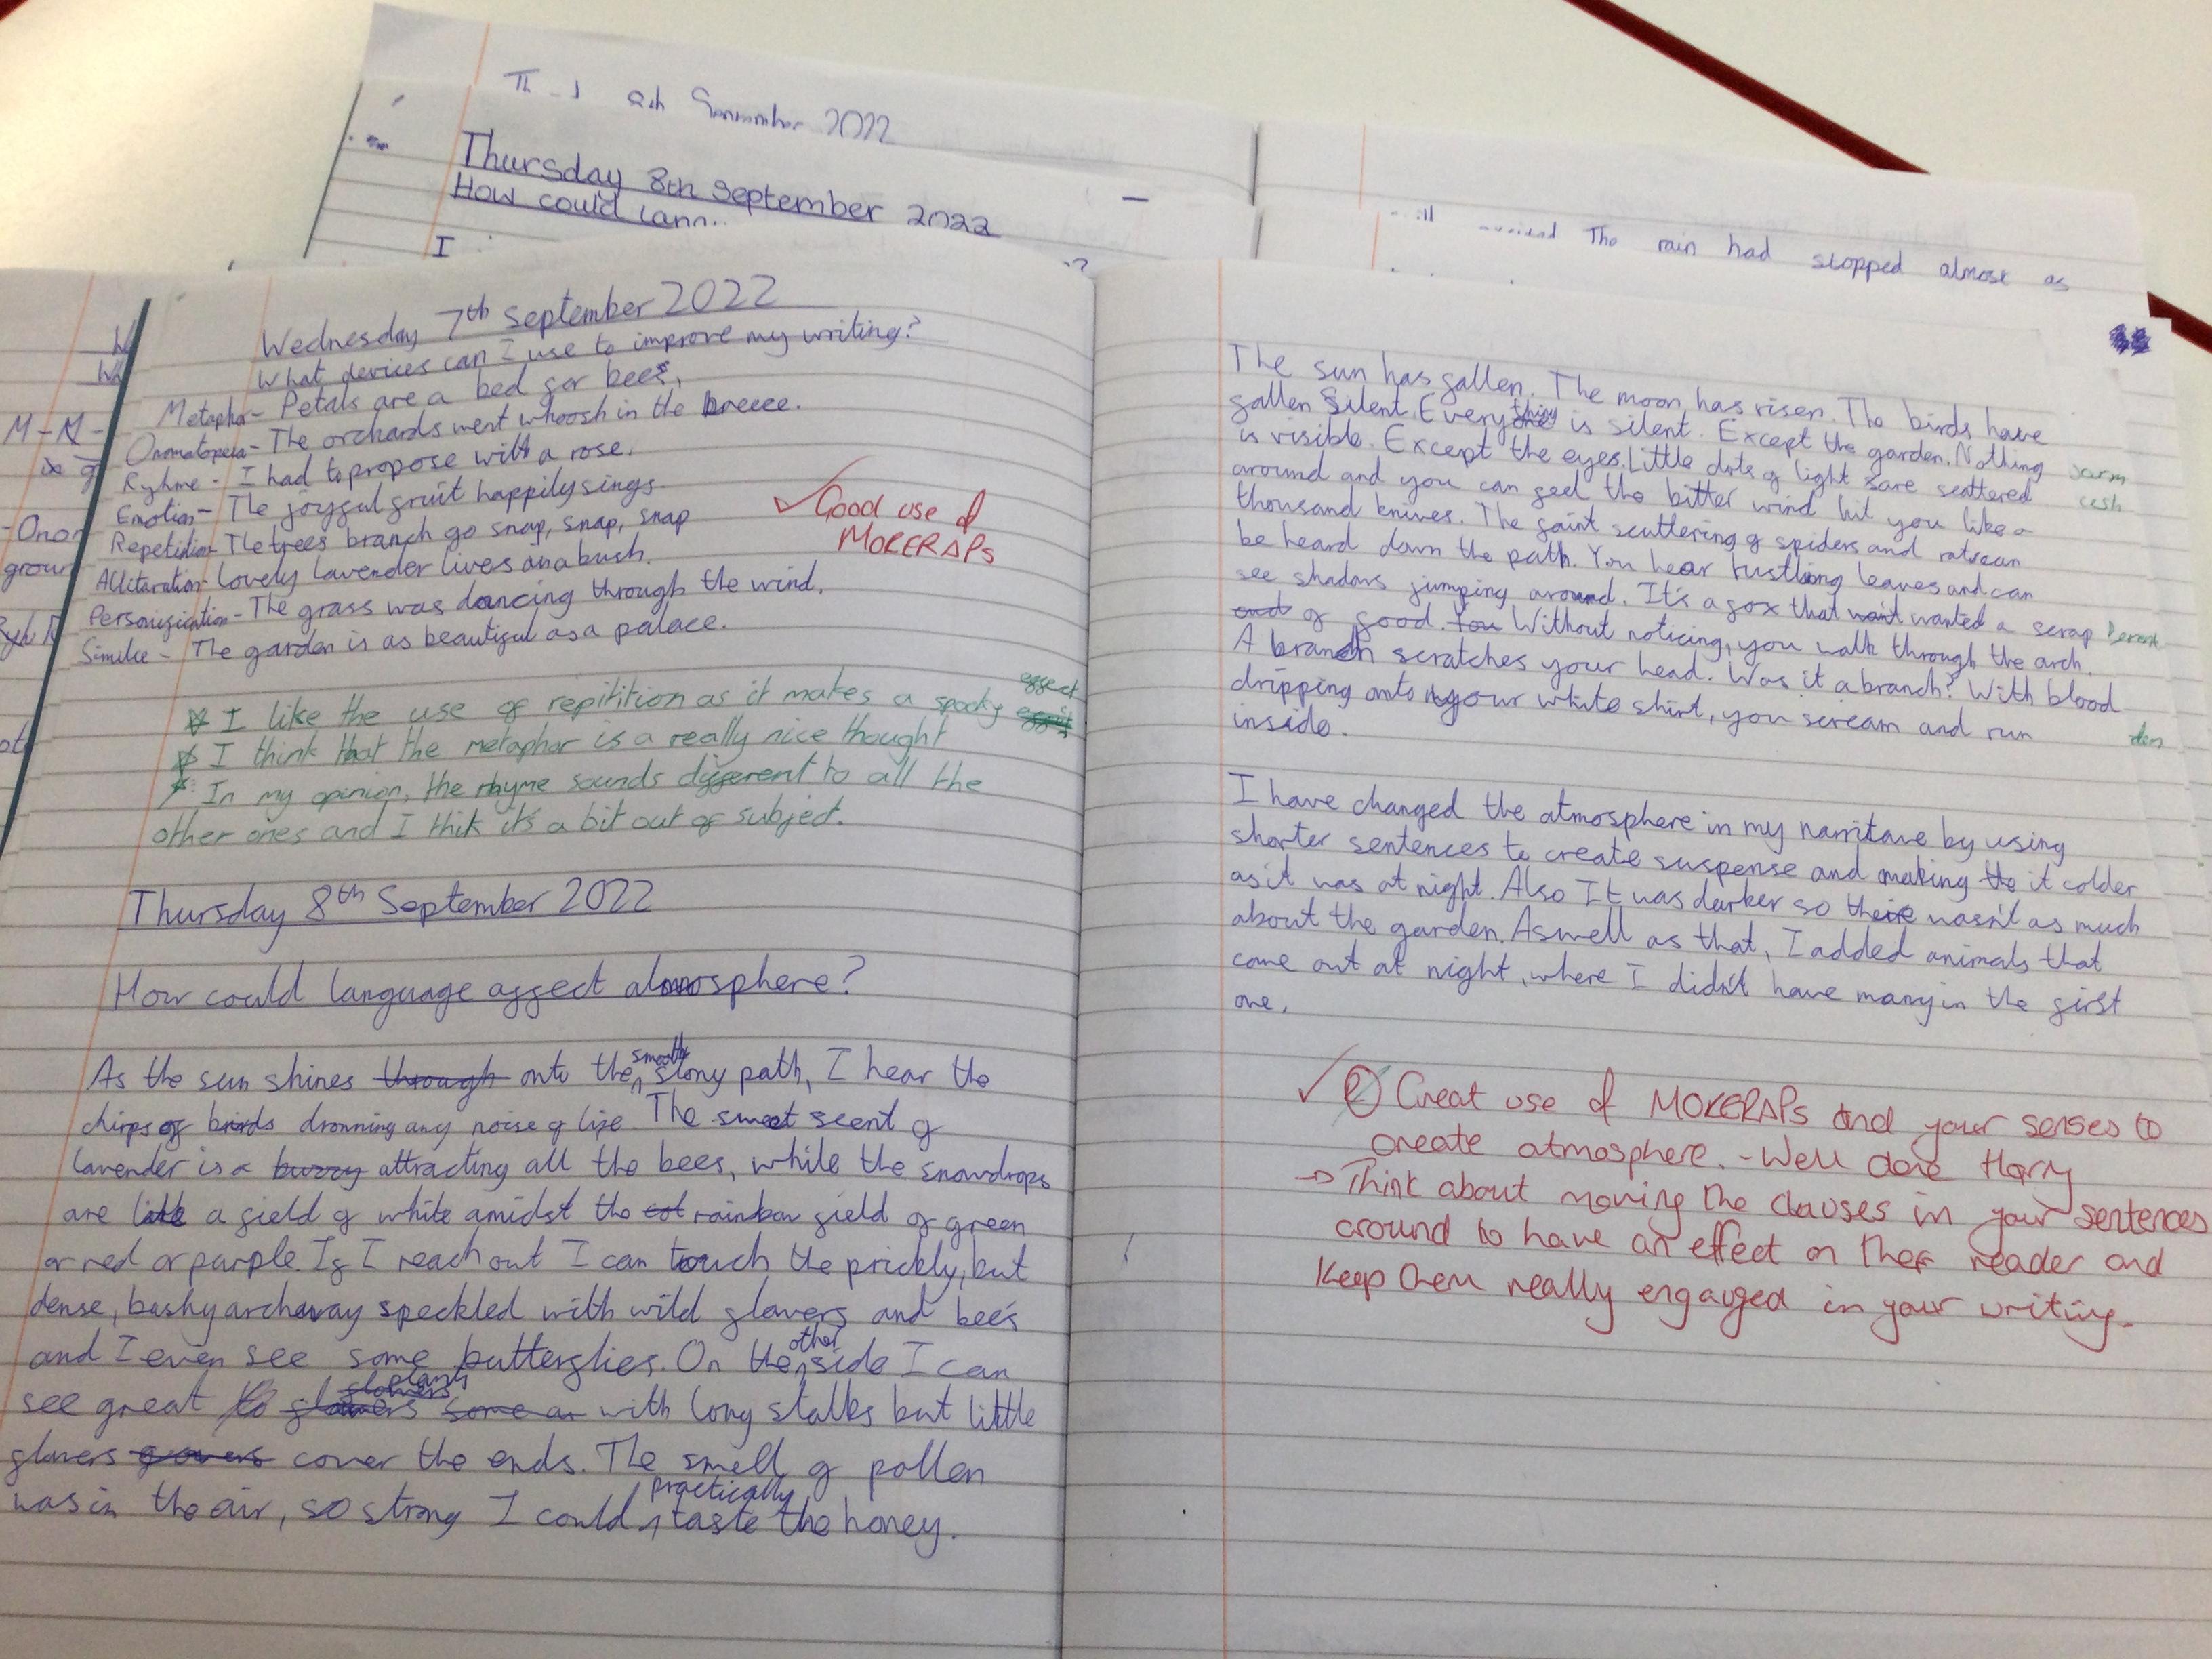 September 2022
Thursday 8th September 2022
How could
I
The rain had stopped almost as
Wednesday 7th September 2022
What devices can I use to improve my writing?
Metaphor- Petals are a bed for bees,
Onomatopeia- The orchards went whoosh in the breeee.
Ryhme - I had to propose with a rose.
Emotion- The joyful fruit happily sings.
Repetition- The trees branch go snap, snap, snap
Alliteration- Lovely Lavender lives on a bush.
Personification- The grass was dancing through the wind.
Similie - The garden is as beautiful as a palace.
M - M -
- Onom
grour
✓ Good use of
MOKERAPs
I like the use of repitition as it makes a spooky effect
I think that the metaphor is a really nice thought
In my opinion, the rhyme sounds different to all the
other ones and I thik it's a bit out of subject.
Thursday 8th September 2022
How could language affect atmosphere?
As the sun shines through onto the smooth stony path, I hear the
chirps of birds drowning any noise of life. The sweet scent of
lavender is a buzzy attracting all the bees, while the snowdrops
are like a field of white amidst the rainbow field of green
or red or purple. If I reach out I can touch the prickly, but
dense, bushy archaway speckled with wild flowers and bees
and I even see some butterflies. On the other side I can
see great to flowers plants some with long stalks but little
flowers cover the ends. The smell of pollen
was in the air, so strong I could practically taste the honey.
The sun has fallen. The moon has risen. The birds have
fallen Silent. Everything is silent. Except the garden. Nothing
is visible. Except the eyes. Little dots of light are scattered
around and you can feel the bitter wind hit you like a
thousand knives. The faint scuttering of spiders and rats can
be heard down the path. You hear rustling leaves and can
see shadows jumping around. It's a fox that want wanted a scrap
and of food. You Without noticing, you walk through the arch.
A branch scratches your head. Was it a branch? With blood
dripping onto your white shirt, you scream and run
inside.
I have changed the atmosphere in my narritave by using
shorter sentences to create suspense and making the it colder
as it was at night. Also It was darker so there wasn't as much
about the garden. Aswell as that, I added animals that
come out at night, where I didn't have many in the first
one.
✓ Great use of MOKERAPs and your senses to
create atmosphere. - Well done Harry
→ Think about moving the clauses in your sentences
around to have an effect on the reader and
keep them really engaged in your writing.